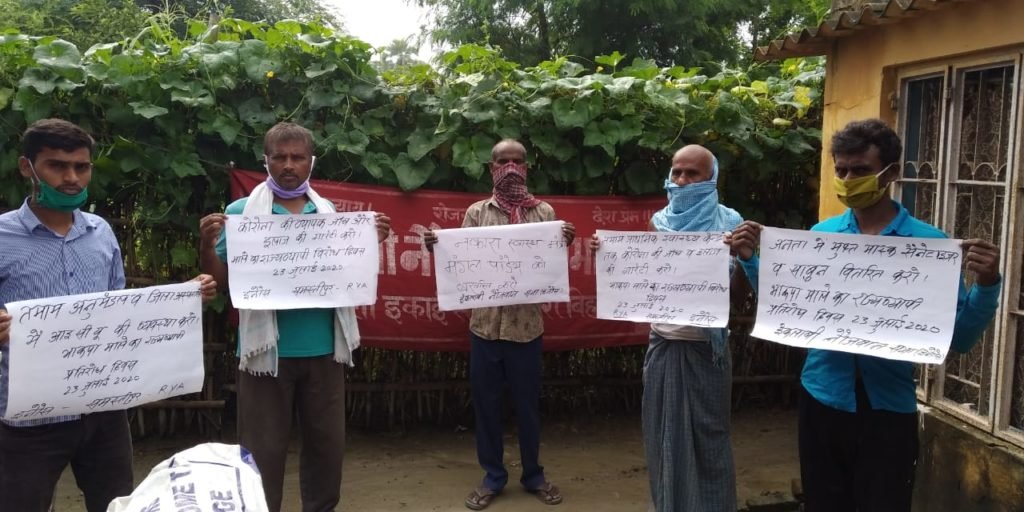 तमाम अनुमंडल व जिला अस्पताल
में आई सी यू की व्यवस्था करो।
भाकपा माले का राज्यव्यापी
प्रतिरोध दिवस
23 जुलाई 2020
इनौस - समस्तीपुर - RYA
कोरोना की व्यापक जांच और
इलाज की गारंटी करो।
माले का राज्यव्यापी विरोध दिवस
23 जुलाई 2020
इनौस समस्तीपुर - RYA
नकारा स्वास्थ्य मंत्री
मंगल पांडेय को
बर्खास्त करो
तमाम प्राथमिक स्वास्थ्य केन्द्र
तक, कोरोना की जांच व इलाज
की गारंटी करो।
भाकपा माले का राज्यव्यापी विरोध
दिवस
23 जुलाई 2020
RYA समस्तीपुर इनौस
जनता में मुफ्त मास्क सैनेटाइजर
व साबुन वितरित करो।
भाकपा माले का राज्यव्यापी
प्रतिरोध दिवस 23 जुलाई 2020
इंकलाबी नौजवान सभा
इकाई